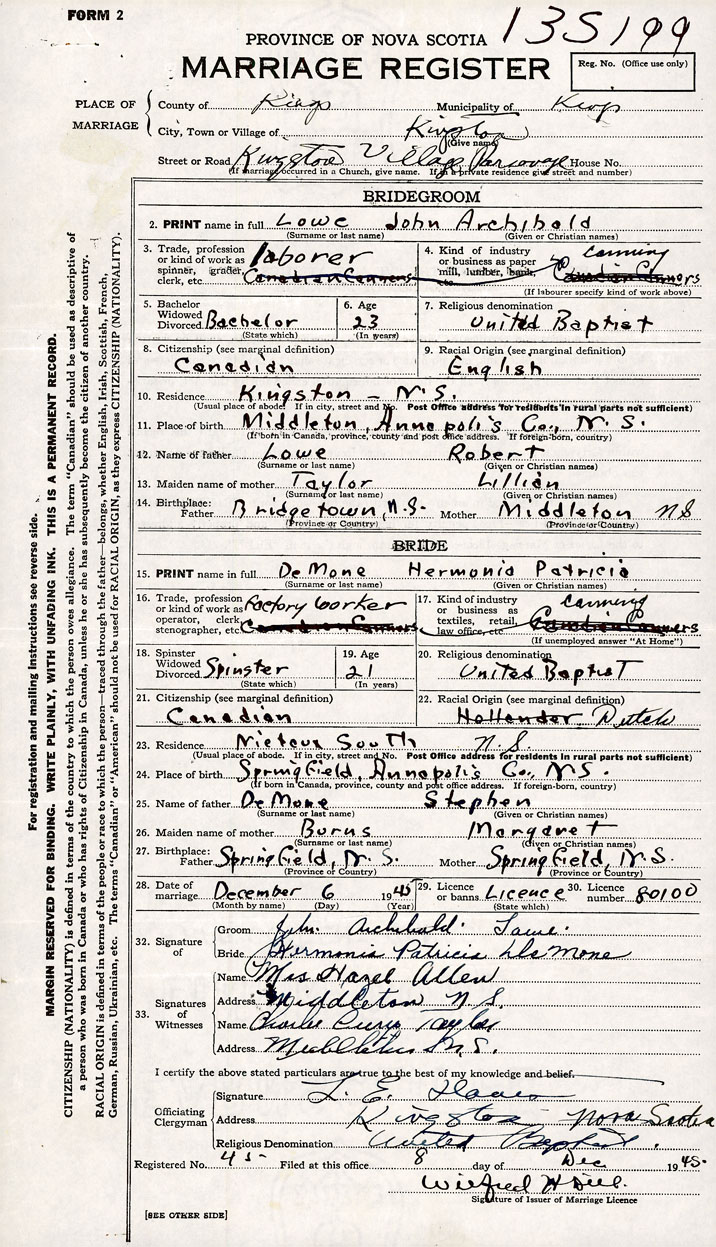 FORM 2
PROVINCE OF NOVA SCOTIA 135199
MARRIAGE REGISTER
Reg. No. (Office use only)
PLACE OF MARRIAGE
County of Kings Municipality of Kings
City, Town or Village of Kingston
(Give name)
Street or Road Kingston Village Parsonage House No.
(If marriage occurred in a Church, give name. If in a private residence give street and number)
BRIDEGROOM
2. PRINT name in full Lowe John Archibald
(Surname or last name) (Given or Christian names)
3. Trade, profession or kind of work as spinner, grader, clerk, etc. laborer Canadian Canners
4. Kind of industry or business as paper mill, lumber, bank, etc. canning Canadian Canners
(If labourer specify kind of work above)
5. Bachelor Widowed Divorced Bachelor
(State which)
6. Age 23
(In years)
7. Religious denomination
United Baptist
8. Citizenship (see marginal definition)
Canadian
9. Racial Origin (see marginal definition)
English
10. Residence Kingston - N.S.
(Usual place of abode. If in city, street and No. Post Office address for residents in rural parts not sufficient)
11. Place of birth Middleton, Annapolis Co., N.S.
(If born in Canada, province, county and post office address. If foreign-born, country)
12. Name of father Lowe Robert
(Surname or last name) (Given or Christian names)
13. Maiden name of mother Taylor Lillian
(Surname or last name) (Given or Christian names)
14. Birthplace: Father Bridgetown, N.S. Mother Middleton NS
(Province or Country) (Province or Country)
BRIDE
15. PRINT name in full DeMone Hermonia Patricia
(Surname or last name) (Given or Christian names)
16. Trade, profession or kind of work as operator, clerk, stenographer, etc. Factory Worker Canadian Canners
17. Kind of industry or business as textiles, retail, law office, etc canning Canadian Canners
(If unemployed answer "At Home")
18. Spinster Widowed Divorced Spinster
(State which)
19. Age 21
(In years)
20. Religious denomination
United Baptist
21. Citizenship (see marginal definition)
Canadian
22. Racial Origin (see marginal definition)
Hollander Dutch
23. Residence Nictaux South N.S.
(Usual place of abode. If in city, street and No. Post Office address for residents in rural parts not sufficient)
24. Place of birth Springfield, Annapolis Co., N.S.
(If born in Canada, province, county and post office address. If foreign-born, country)
25. Name of father DeMone Stephen
(Surname or last name) (Given or Christian names)
26. Maiden name of mother Burns Margaret
(Surname or last name) (Given or Christian names)
27. Birthplace: Father Springfield, N.S. Mother Springfield, N.S.
(Province or Country) (Province or Country)
28. Date of marriage December 6 1945
(Month by name) (Day) (Year)
29. Licence or banns Licence
(State which)
30. Licence number 80100
32. Signature of
Groom John Archibald Lowe
Bride Hermonia Patricia DeMone
33. Signatures of Witnesses
Name Mrs Hazel Allen
Address Middleton N.S.
Name Charlie Taylor
Address Middleton N.S.
I certify the above stated particulars are true to the best of my knowledge and belief.
Officiating Clergyman
Signature L. E.
Address Kingston Nova Scotia
Religious Denomination United Baptist.
Registered No. 45- Filed at this office 8 day of Dec 1945-
Wilfred H
Signature of Issuer of Marriage Licence
[SEE OTHER SIDE]
For registration and mailing instructions see reverse side.
MARGIN RESERVED FOR BINDING. WRITE PLAINLY, WITH UNFADING INK. THIS IS A PERMANENT RECORD.
CITIZENSHIP (NATIONALITY) is defined in terms of the country to which the person owes allegiance. The term "Canadian" should be used as descriptive of
a person who was born in Canada or who has rights of Citizenship in Canada, unless he or she has subsequently become the citizen of another country.
RACIAL ORIGIN is defined in terms of the people or race to which the person—traced through the father—belongs, whether English, Irish, Scottish, French,
German, Russian, Ukrainian, etc. The terms "Canadian" or "American" should not be used for RACIAL ORIGIN, as they express CITIZENSHIP (NATIONALITY).